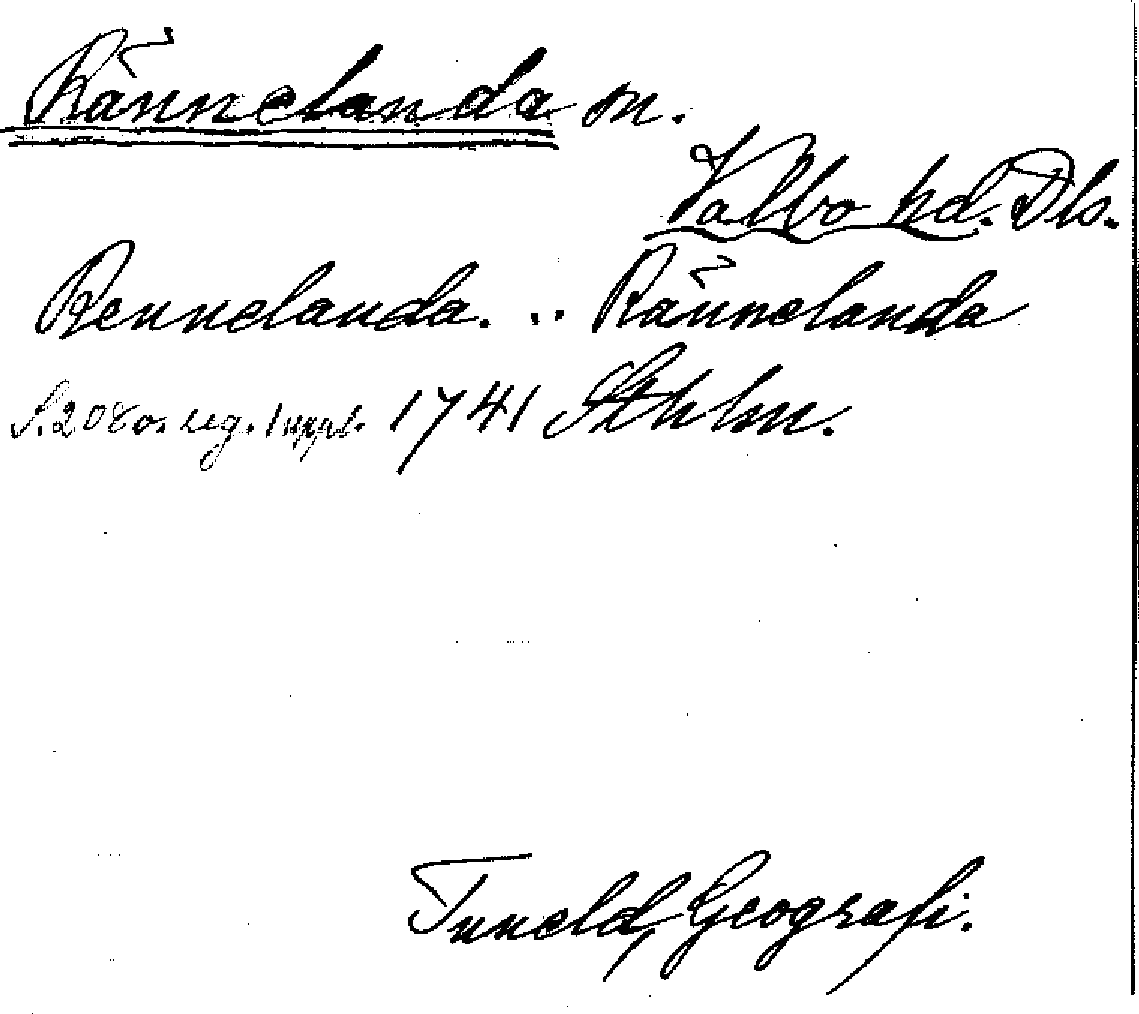 Rännelanda sn.
Valbo hd. Dls.
Rennelanda. .. Rännelanda
S. 208 o. reg. 1 uppl. 1741 Sthlm.
Tuneld, Geografi.